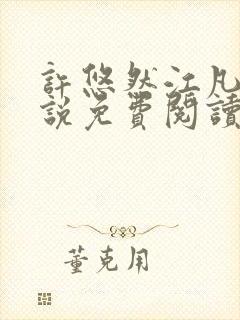 許悠然江凡
說免費閱讀
董克用